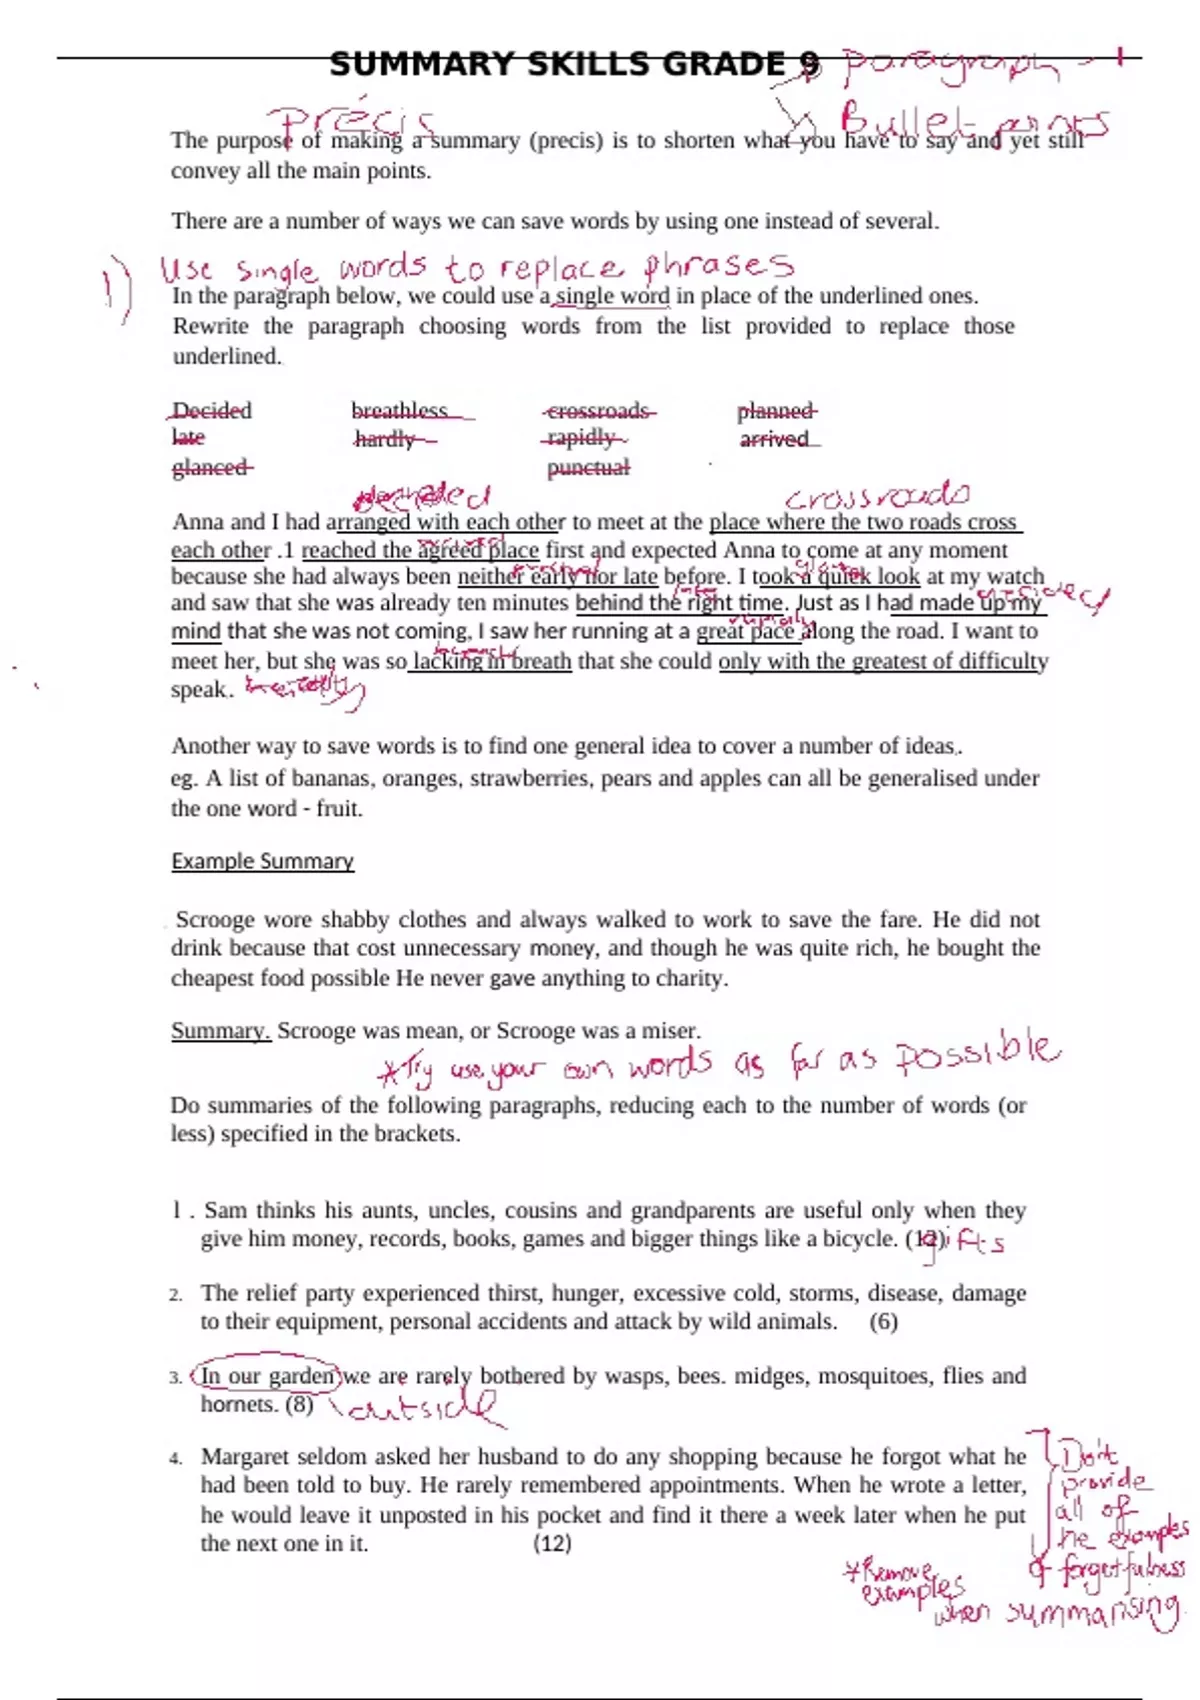 SUMMARY SKILLS GRADE 9
paragraph - 1
Précis
Bullet points
The purpose of making a summary (precis) is to shorten what you have to say and yet still
convey all the main points.
There are a number of ways we can save words by using one instead of several.
1) Use single words to replace phrases
In the paragraph below, we could use a single word in place of the underlined ones.
Rewrite the paragraph choosing words from the list provided to replace those
underlined.
Decided breathless crossroads planned
late hardly rapidly arrived
glanced punctual
decided crossroads
Anna and I had arranged with each other to meet at the place where the two roads cross
each other .1 reached the agreed place first and expected Anna to come at any moment
because she had always been neither early nor late before. I took a quick look at my watch
and saw that she was already ten minutes behind the right time. Just as I had made up my
mind that she was not coming, I saw her running at a great pace along the road. I want to
meet her, but she was so lacking in breath that she could only with the greatest of difficulty
speak.
Another way to save words is to find one general idea to cover a number of ideas..
eg. A list of bananas, oranges, strawberries, pears and apples can all be generalised under
the one word - fruit.
Example Summary
Scrooge wore shabby clothes and always walked to work to save the fare. He did not
drink because that cost unnecessary money, and though he was quite rich, he bought the
cheapest food possible He never gave anything to charity.
Summary. Scrooge was mean, or Scrooge was a miser.
*Try use your own words as far as possible
Do summaries of the following paragraphs, reducing each to the number of words (or
less) specified in the brackets.
l . Sam thinks his aunts, uncles, cousins and grandparents are useful only when they
give him money, records, books, games and bigger things like a bicycle. (12) gifts
2. The relief party experienced thirst, hunger, excessive cold, storms, disease, damage
to their equipment, personal accidents and attack by wild animals. (6)
3. In our garden we are rarely bothered by wasps, bees. midges, mosquitoes, flies and
hornets. (8) outside
4. Margaret seldom asked her husband to do any shopping because he forgot what he
had been told to buy. He rarely remembered appointments. When he wrote a letter,
he would leave it unposted in his pocket and find it there a week later when he put
the next one in it. (12)
Don't
provide
all of
he examples
of forgetfulness
*Remove
examples
when summarising